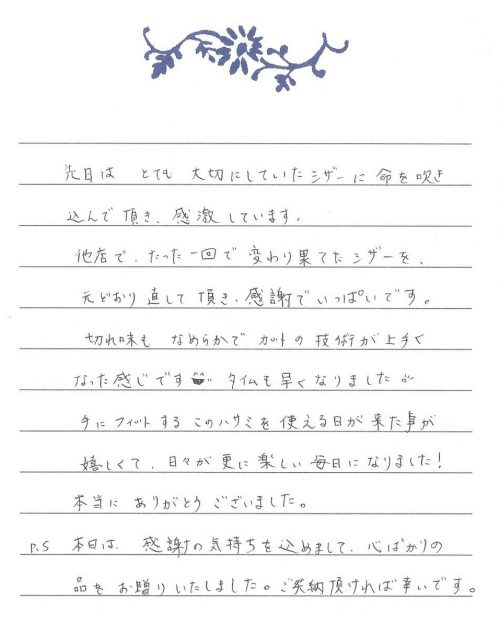 先日は とても 大切にしていたシザーに 命を吹き
込んで 頂き、感激しています。
他店で、たった一回で 変わり果てたシザーを、
元どおり 直して 頂き、感謝で いっぱいです。
切れ味も なめらかで カットの 技術が上手く
なった感じです タイムも早くなりました
手にフィットする このハサミを 使える日が 来た事が
嬉しくて、日々が 更に楽しい 毎日になりました!
本当に ありがとう ございました。
P.S 本日は、感謝の気持ちを込めまして、心ばかりの
品を お贈りいたしました。ご笑納頂ければ幸いです。